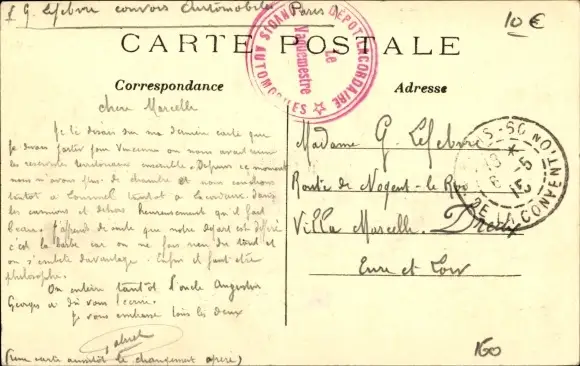 G. Lefebvre convois Automobiles Paris
10 €
CARTE POSTALE
CONVOIS AUTOMOBILES DÉPÔT LACORDAIRE
Le
Vaguemestre
Correspondance
Adresse
chère Marcelle
Je te disais sur ma dernière carte que
je devais partir pour Vincennes on nous avait
les réservistes territoriaux ensemble. Depuis ce moment
nous n'avons plus de chambre et nous couchons
tantôt à tantôt à Lacordaire dans
les camions et dehors heureusement qu'il fait
beau. J'apprends de suite que notre départ est différé
c'est la barbe car on ne fais rien du tout et
on s'embête davantage. Enfin il faut être
philosophe.
On enterre tantôt l'oncle Augustin
Georges a dû vous l'écrire.
Je vous embrasse tous les deux
(une carte aussitôt le changement opéré)
Madame G. Lefebvre
Route de Nogent-le-Roi
Villa Marcelle. Dreux
Eure et Loir
PARIS-50
RUE DE LA CONVENTION
160